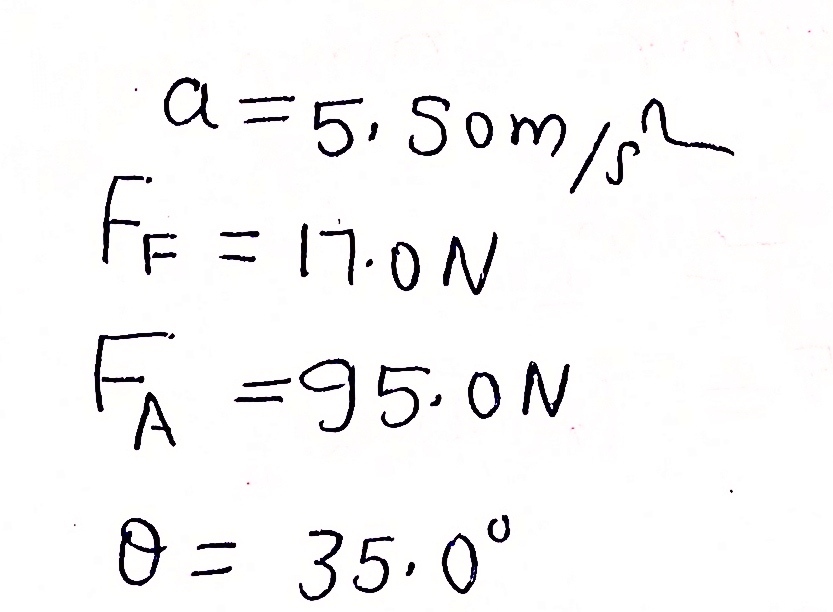 a = 5.50 m/s²
F_F = 17.0 N
F_A = 95.0 N
θ = 35.0°